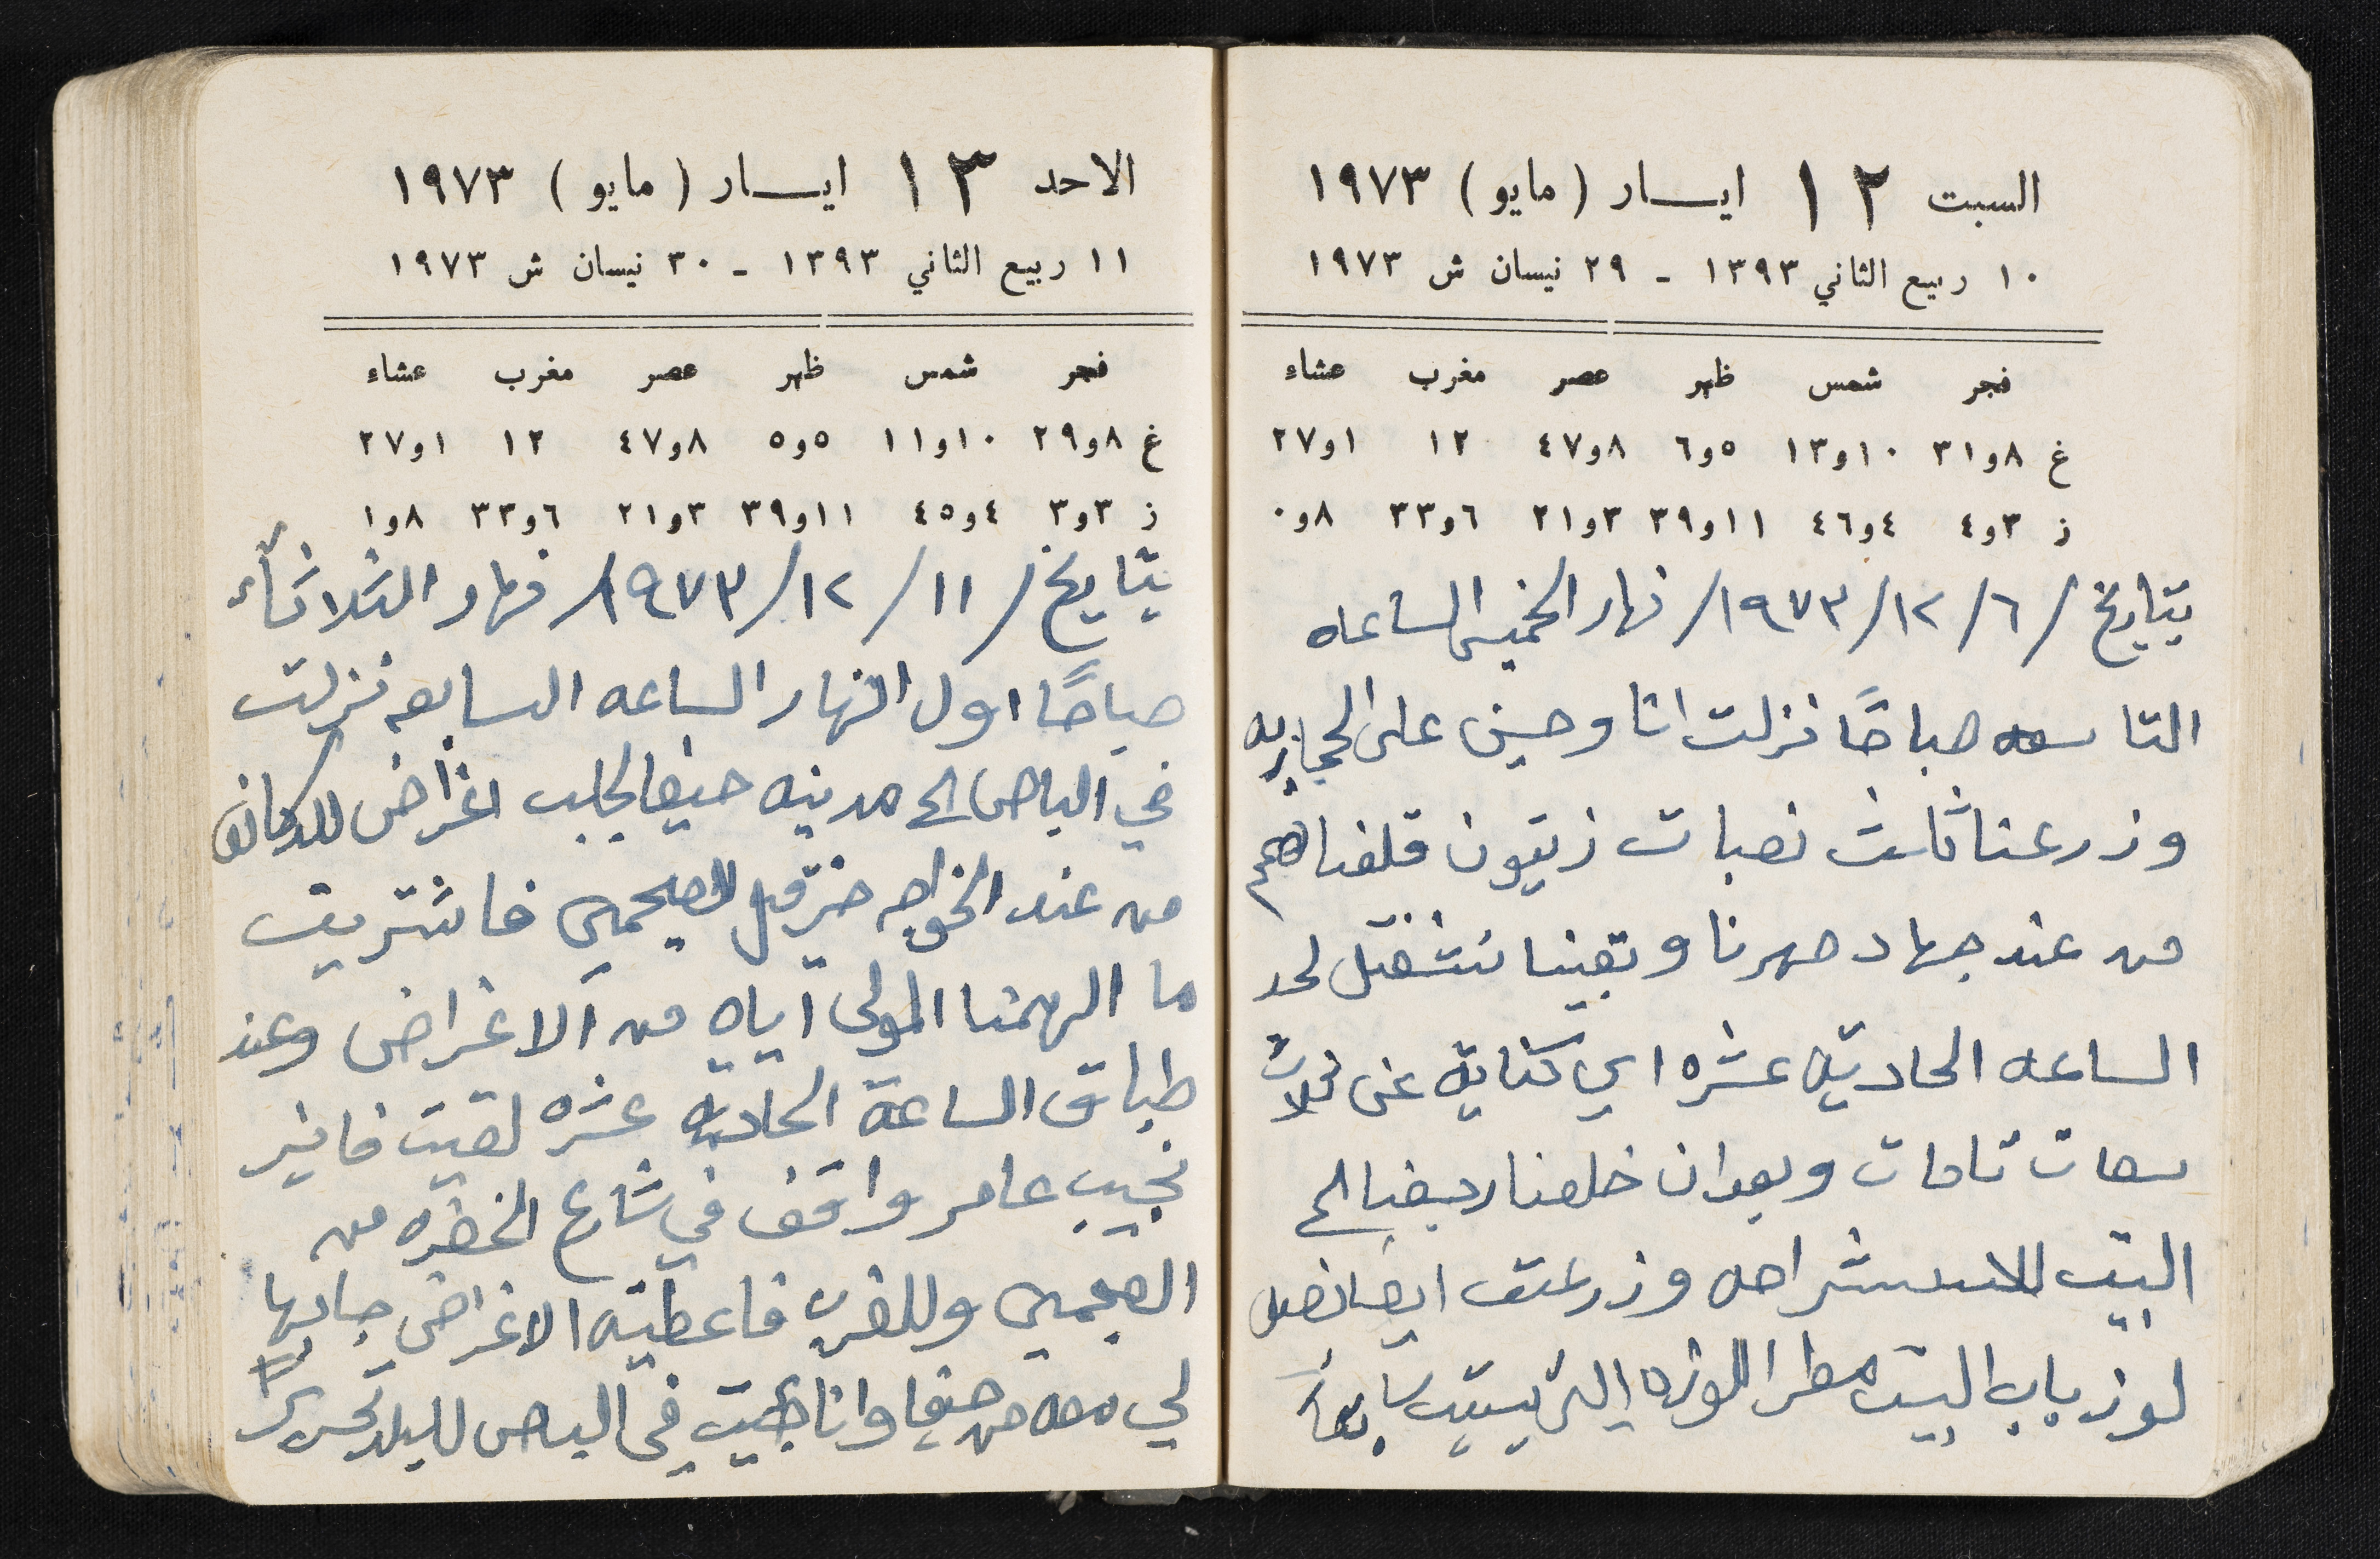 السبت ١٢ ايسار (مايو) ١٩٧٣
١٠ ربيع الثاني ١٣٩٣ - ٢٩ نيسان ش ١٩٧٣
فجر شمس ظهر عصر مغرب عشاء
غ ٨و٣١ ١٠و١٣ ٥و٦ ٨و٤٧ ١٢ ١و٢٧
ز ٣و٤ ٤و٤٦ ١١و٣٩ ٣و٢١ ٦و٣٣ ٨و٠
بتاريخ /٦/١٢/١٩٧٣/ نهار الخميس الساعه
التاسعه صباحًا نزلت انا وحسين على الحجازيه
وزرعنا ثلث نصبات زيتون قلعناهم
من عند جهاد صهرنا وبقينا نشتغل لحد
الساعه الحاديه عشره اي كنايه عن ثلاث
سعات تامات وبعد ان خلصنا رجعنا الى
البيت للاستراحه وزرعت ايضا نصبه
لوز باب البيت مطرا اللوزه اليبست سابقاً
الاحد ١٣ ايسار (مايو) ١٩٧٣
١١ ربيع الثاني ١٣٩٣ - ٣٠ نيسان ش ١٩٧٣
فجر شمس ظهر عصر مغرب عشاء
غ ٨و٢٩ ١٠و١١ ٥و٥ ٨و٤٧ ١٢ ١و٢٧
ز ٣و٣ ٤و٤٥ ١١و٣٩ ٣و٢١ ٦و٣٣ ٨و١
بتاريخ /١١/١٢/١٩٧٣/ نهار الثلاثاء
صباحًا اول النهار الساعه السابعه نزلت
في الباص الى مدينه حيفا لجلب اغراض للدكان
من عند الخواجه حزقيل فاشتريت
ما الهمنا المولى اياه من الاغراض وعند
طباق الساعة الحاديه عشره لقيت فايز
نجيب عامر واقف في شارع الخضره من
فاعطيته الاغراض جابها
لي معه من حيفا وانا جيت في الباص للبلد